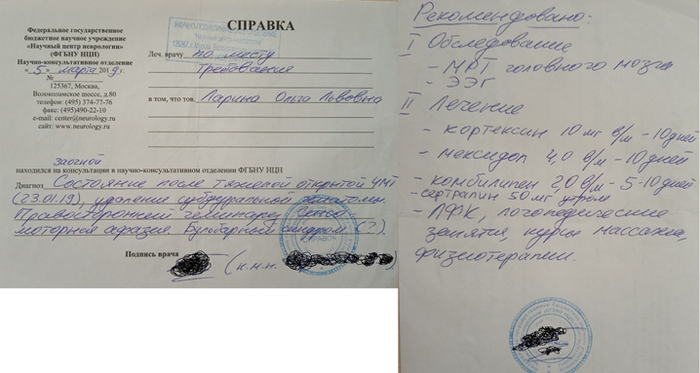 Федеральное государственное
бюджетное научное учреждение
«Научный центр неврологии»
(ФГБНУ НЦН)
Научно-консультативное отделение
«5» марта 2019 г.
№
125367, Москва,
Волоколамское шоссе, д.80
телефон: (495) 374-77-76
факс: (495)490-22-10
e-mail: center@neurology.ru
сайт: www.neurology.ru
СПРАВКА
Леч. врачу по месту
Требования
в том, что тов. Ларина Ольга Львовна
заочной
находился на консультации в научно-консультативном отделении ФГБНУ НЦН
Диагноз Состояние после тяжелой открытой ЧМТ
(23.01.19), удаления субдуральной гематомы.
Правосторонний гемипарез.
моторная афазия. Бульбарный синдром (?).
Подпись врача (к.м.н.
Рекомендовано:
I Обследование
- МРТ головного мозга
- ЭЭГ
II Лечение
- кортексин 10 мг в/м - 10 дней
- мексидол 4,0 в/м - 10 дней
- комбилипен 2,0 в/м - 5-10 дней
- сертралин 50 мг утром
- ЛФК, логопедические
занятия, курсы массажа,
физиотерапии.